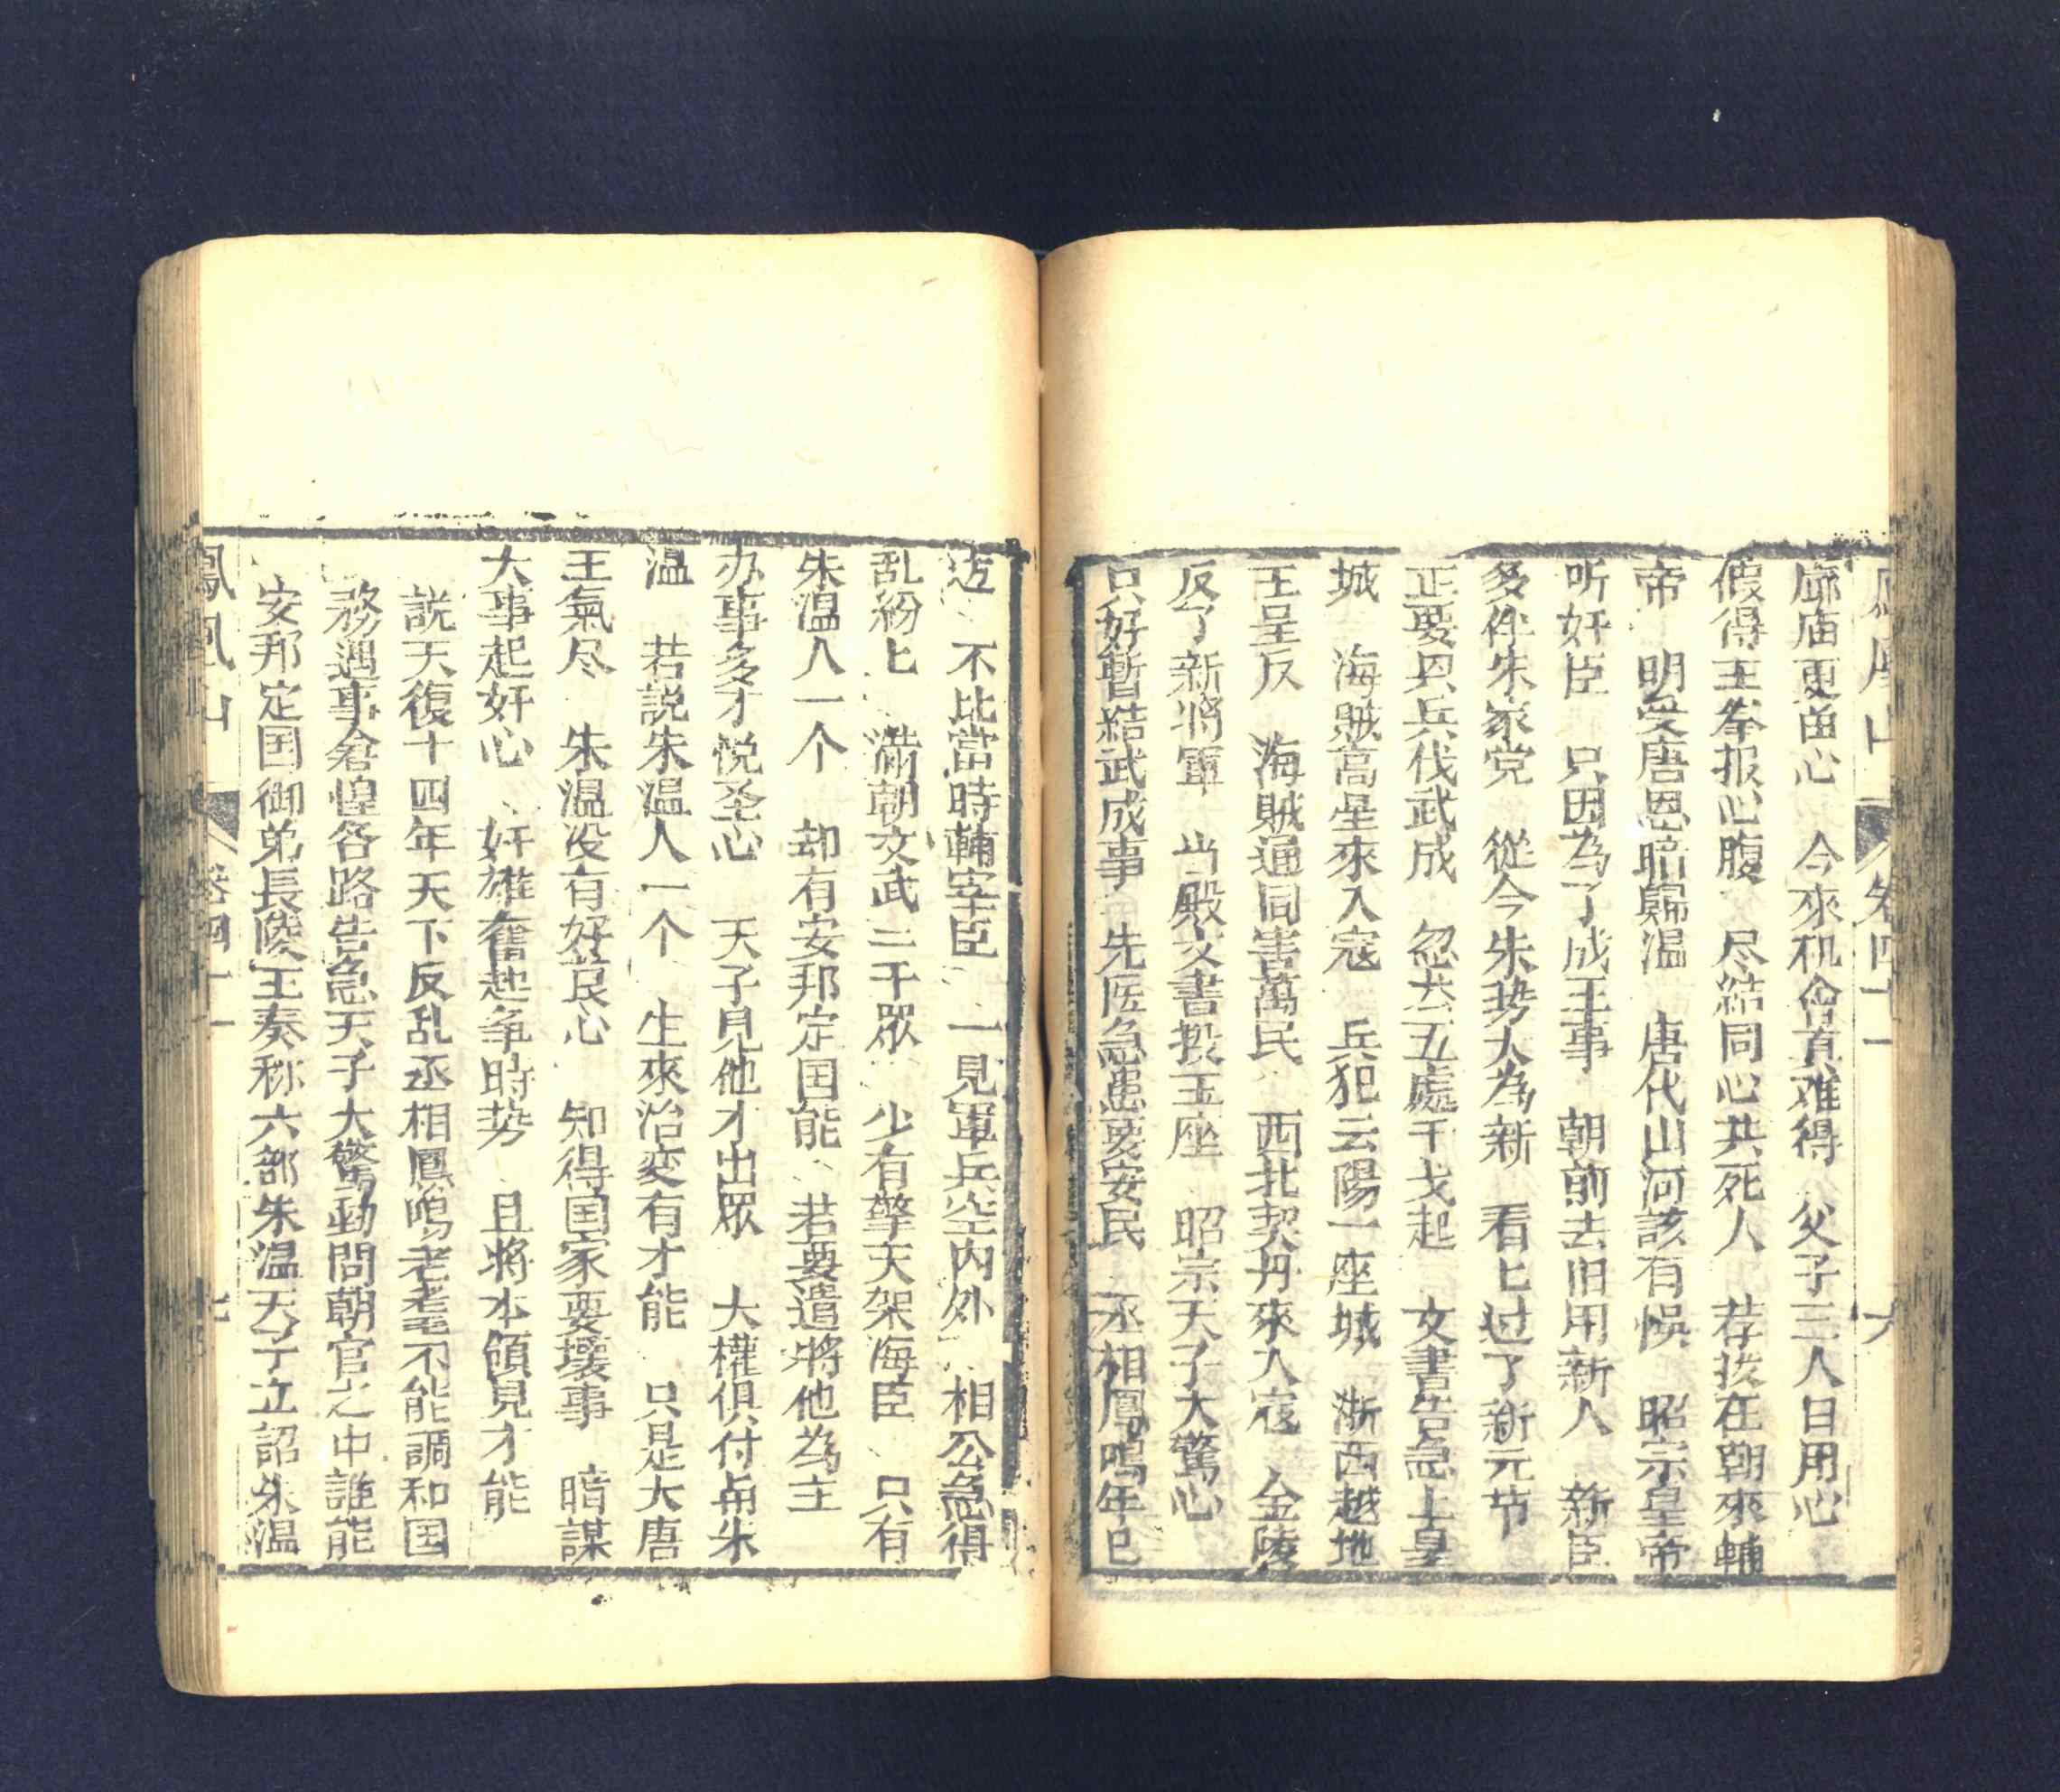 卷四十一 六
廊庙更苗心 今來机會真难得 父子三人日用心
假得王拳报心腹 尽結同心共死人 若孩在朝來輔
帝 明受唐恩暗歸温 唐代山河該有悞 昭宗皇帝
听奸臣 只因為了成王事 朝前去旧用新人 新臣
多伴朱家党 從今朱势大為新 看匕过了新元节
正要兴兵伐武成 忽然五處干戈起 文書告急上皇
城 海賊高星來入寇 兵犯云陽一座城 浙西越地
王呈反 海賊通同害萬民 西北契丹來入寇 金陵
反了新將軍 当殿文書投玉座 昭宗天子大驚心
只好暫結武成事 先医急患要安民 丞相鳳鳴年已
迈 不比當時輔宰臣 一見軍兵空内外 相公急得
乱紛匕 滿朝文武三千眾 少有擎天架海臣 只有
朱温人一个 却有安邦定国能 若要遣將他為主
办事多才悦圣心 天子見他才出眾 大權俱付与朱
温 若説朱温人一个 生來治変有才能 只是大唐
王氣尽 朱温没有好良心 知得国家要壞事 暗謀
大事起奸心 奸雄奮起争時势 且將本領見才能
説天復十四年天下反乱丞相鳳鳴老耄不能調和国
務遇事倉惶各路告急天子大驚動問朝官之中誰能
安邦定国御弟長陵王奏称六部朱温天子立詔朱温
鳳凰山 卷四十一 七